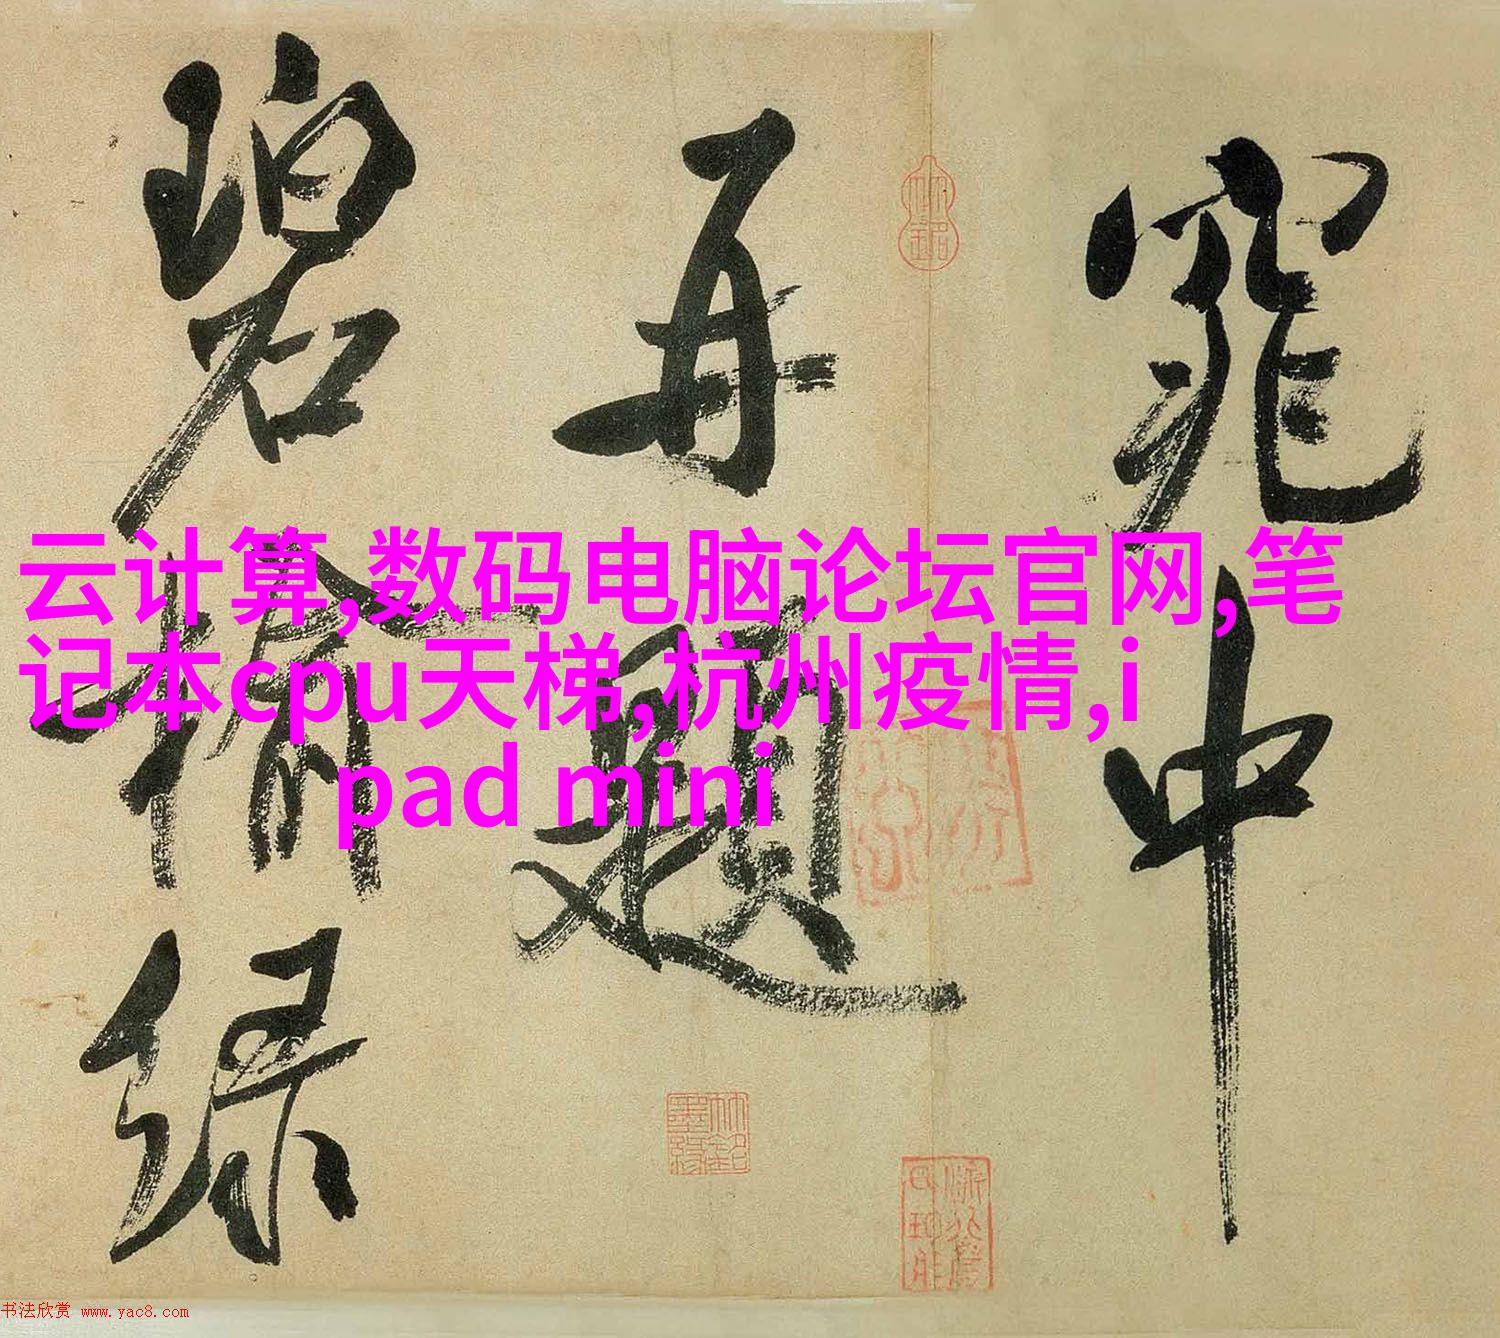 窕中
再題
碧榆綠
云计算,数码电脑论坛官网,笔
记本cpu天梯,杭州疫情,i
pad mini
书法欣赏 www.yac8.com